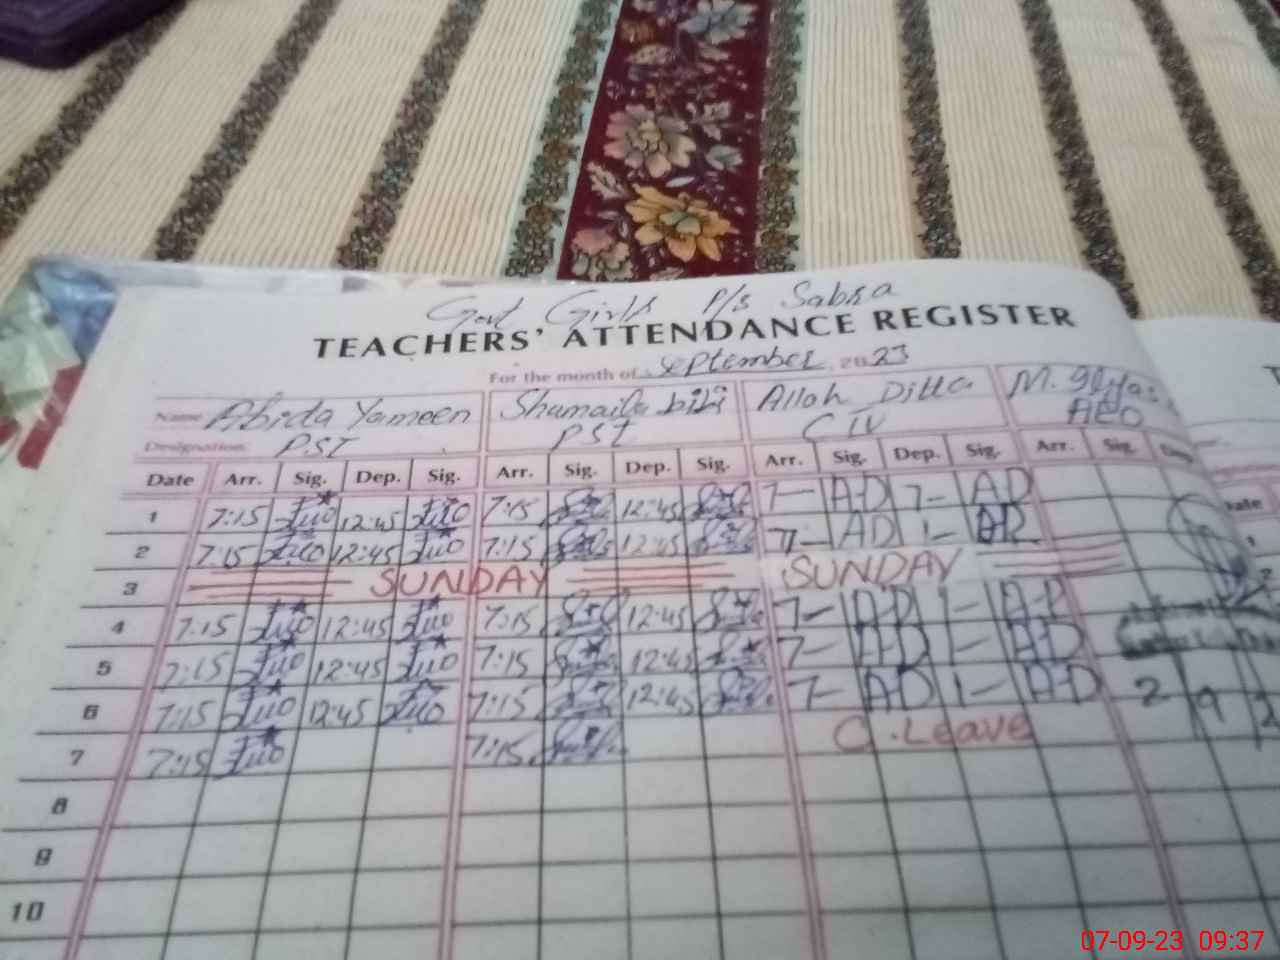 Govt Girls P/s Sabra
TEACHERS' ATTENDANCE REGISTER
For the month of September 2023
Name Abida Yameen Shumaila bibi Allah Ditta M. Ilyas
Designation: PST PST C IV AEO
Date Arr. Sig. Dep. Sig. Arr. Sig. Dep. Sig. Arr. Sig. Dep. Sig. Arr. Sig. Dep.
1 7:15 12:45 7:15 12:45 7— A-D 7— AD
2 7:15 12:45 7:15 12:45 7— AD 1— AD
3 SUNDAY SUNDAY
4 7:15 12:45 7:15 12:45 7— A-D 1— A-D
5 7:15 12:45 7:15 12:45 7— A-D 1— A-D
6 7:15 12:45 7:15 12:45 7— A-D 1— A-D 2 9 2
7 7:15 7:15 C. Leave
8
9
10
07-09-23 09:37